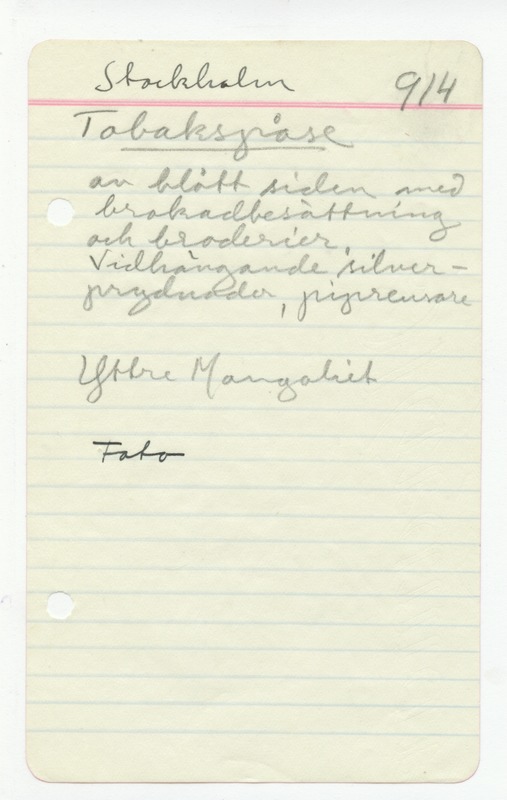 Stockholm 9/4
Tobakspåse
av blått siden med
brokadbesättning
och broderier.
Vidhängande silver-
prydnader, piprensare
Yttre Mongoliet
Foto